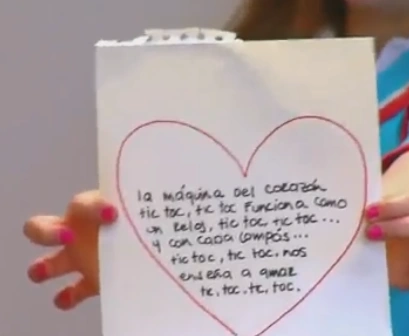 la máquina del corazón
tic toc, tic toc funciona como
un reloj, tic toc, tic toc...
y con cada compás...
tic toc, tic toc, nos
enseña a amar
tic, toc, tic, toc.